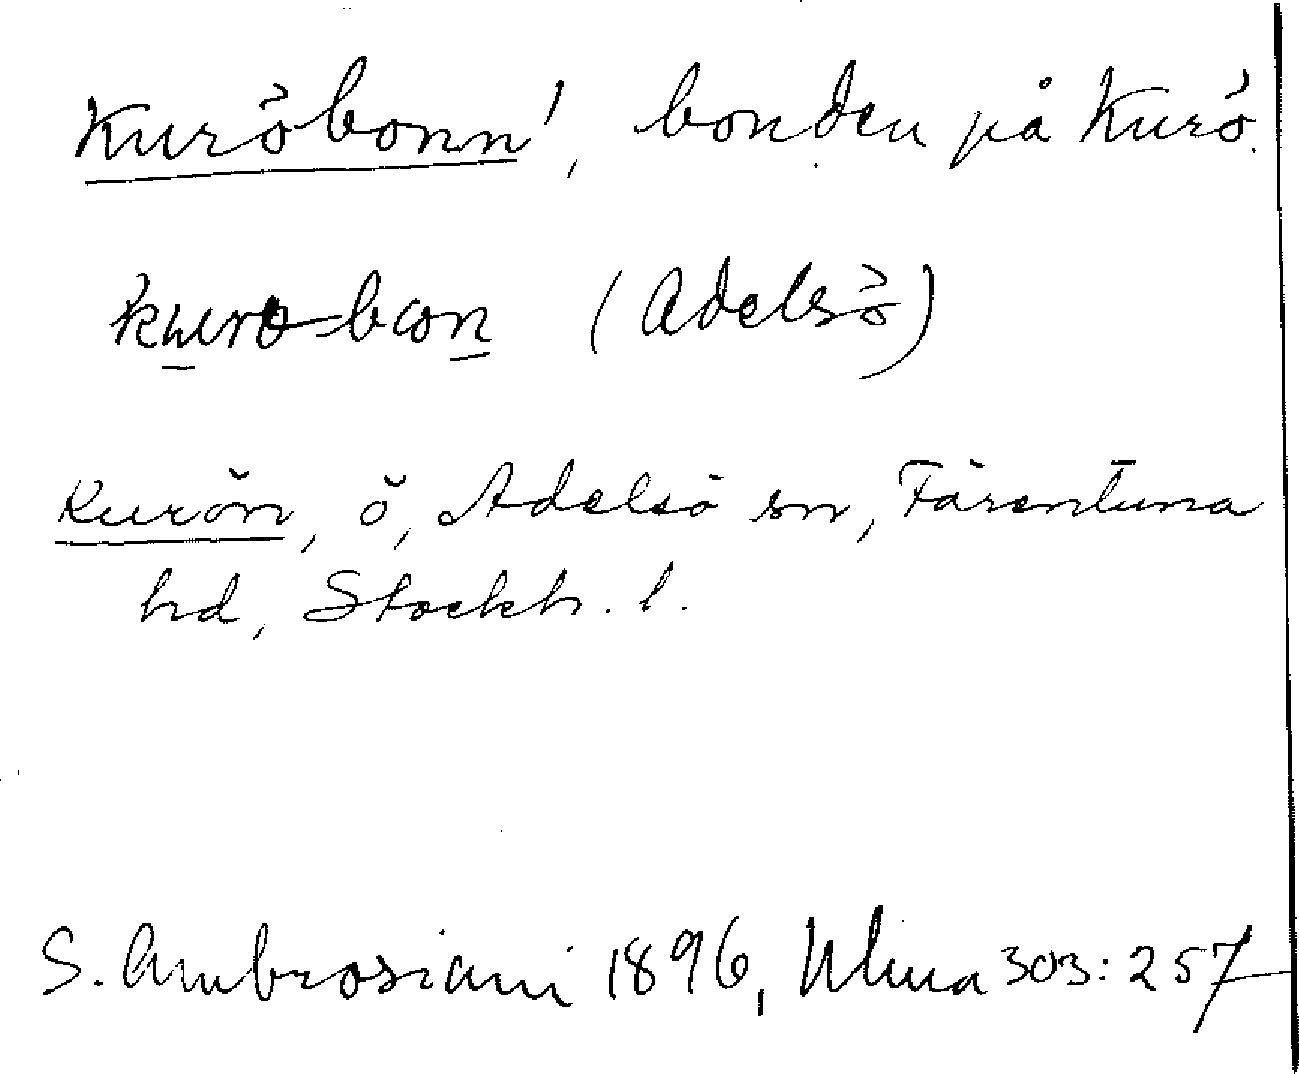 Kuröbonn', bonden på Kurö.
(Adelsö)
Kurön, ö, Adelsö sn, Färentuna
hd, Stockh. l.
S. Ambrosiani 1896, Ulma 303:257